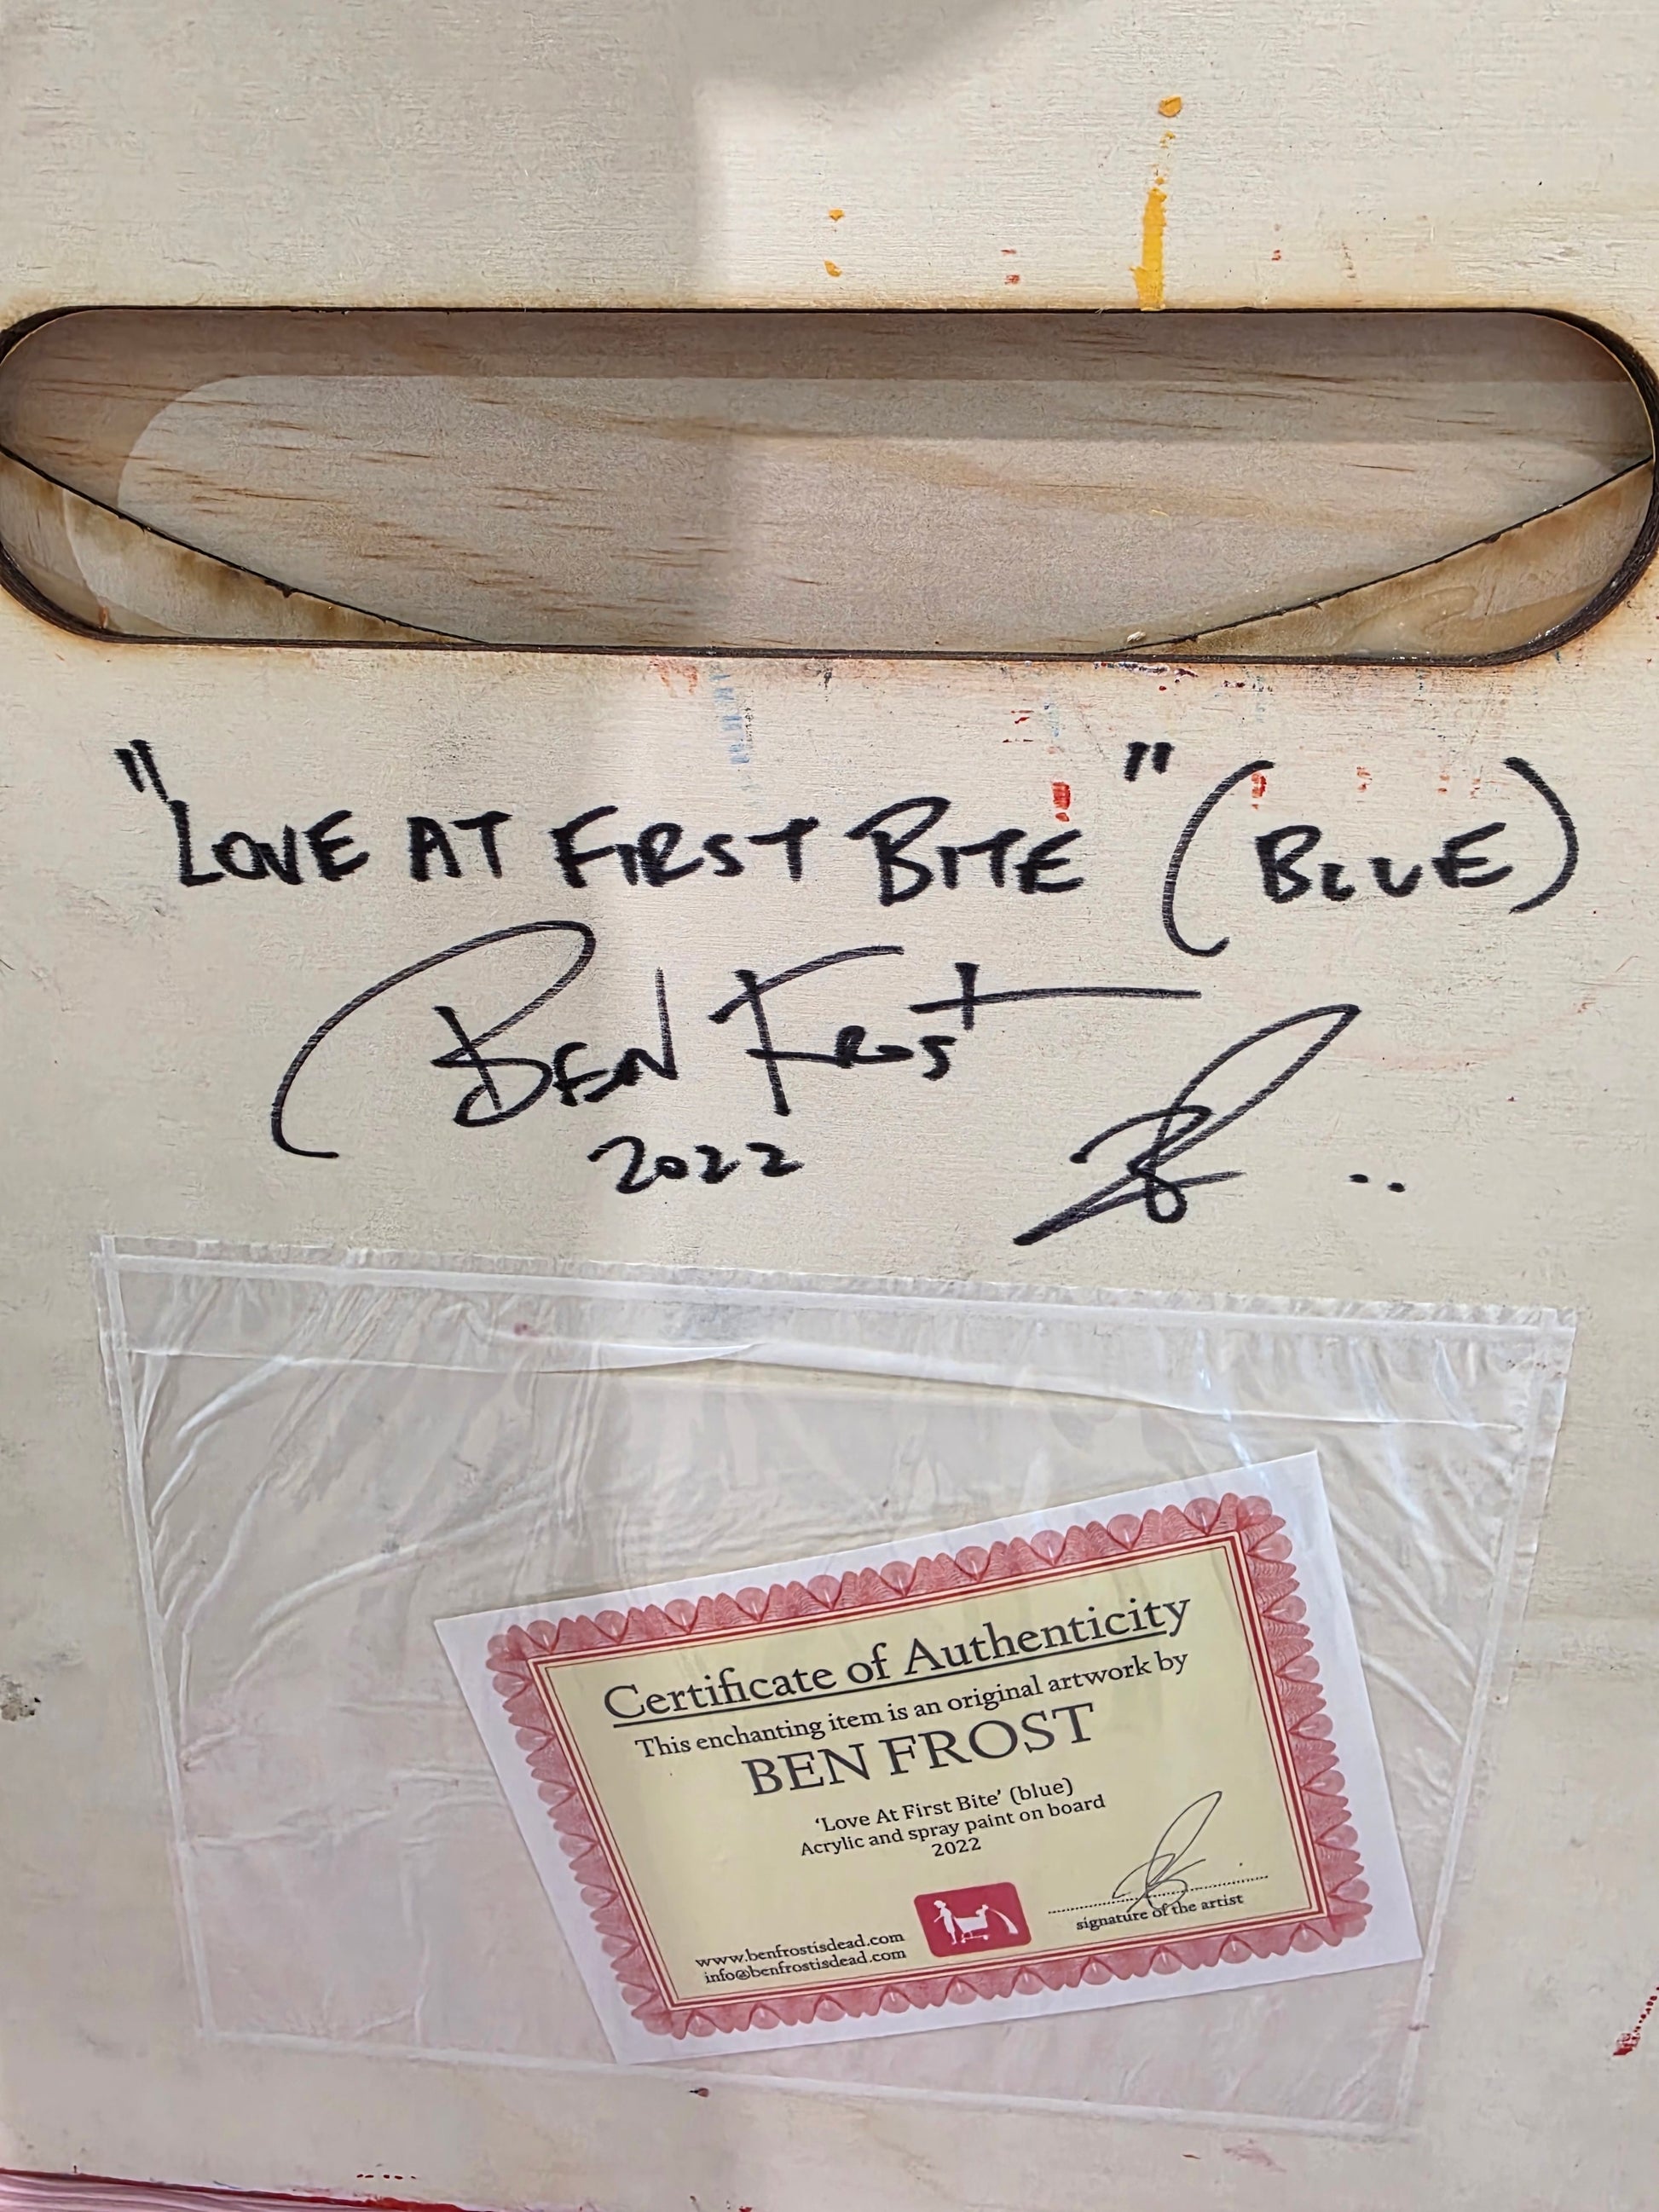 "LOVE AT FIRST BITE" (BLUE)
BEN FROST
2022
Certificate of Authenticity
This enchanting item is an original artwork by
BEN FROST
'Love At First Bite' (blue)
Acrylic and spray paint on board
2022
www.benfrostisdead.com
info@benfrostisdead.com
signature of the artist